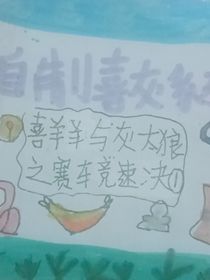 自制喜灰系
喜羊羊与灰太狼
之赛车竞速决①